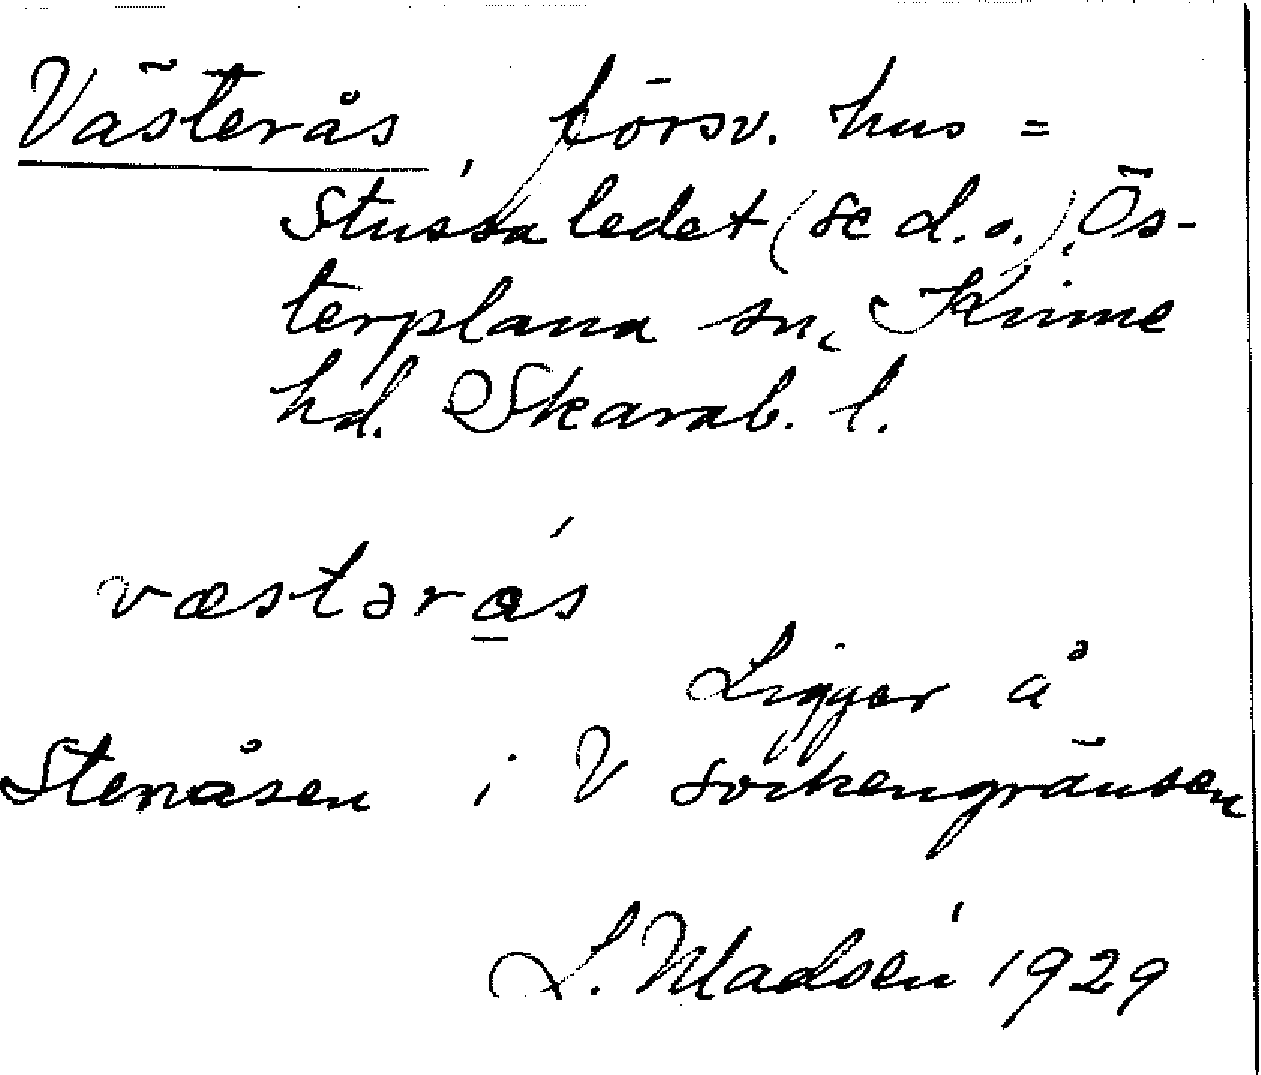 Västerås, försv. hus =
Stussaledet (se d. o.), Ös-
terplana sn, Kinne
hd. Skarab. l.
væstərás
Ligger å
Stenåsen i V sockengränsen
L. Madsén 1929